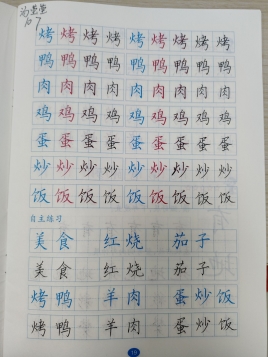 烤烤烤烤烤烤烤烤
鸭鸭鸭鸭鸭鸭鸭鸭
肉肉肉肉肉肉肉肉
鸡鸡鸡鸡鸡鸡鸡鸡
蛋蛋蛋蛋蛋蛋蛋蛋
炒炒炒炒炒炒炒炒
饭饭饭饭饭饭饭饭
自主练习
美食 红烧 茄子
美食 红烧 茄子
烤鸭 羊肉 蛋炒饭
烤鸭 羊肉 蛋炒饭